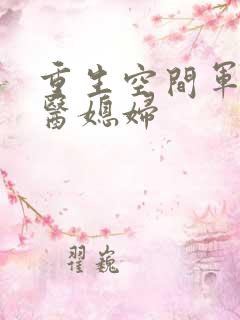 重生空間軍
醫媳婦
翟巍